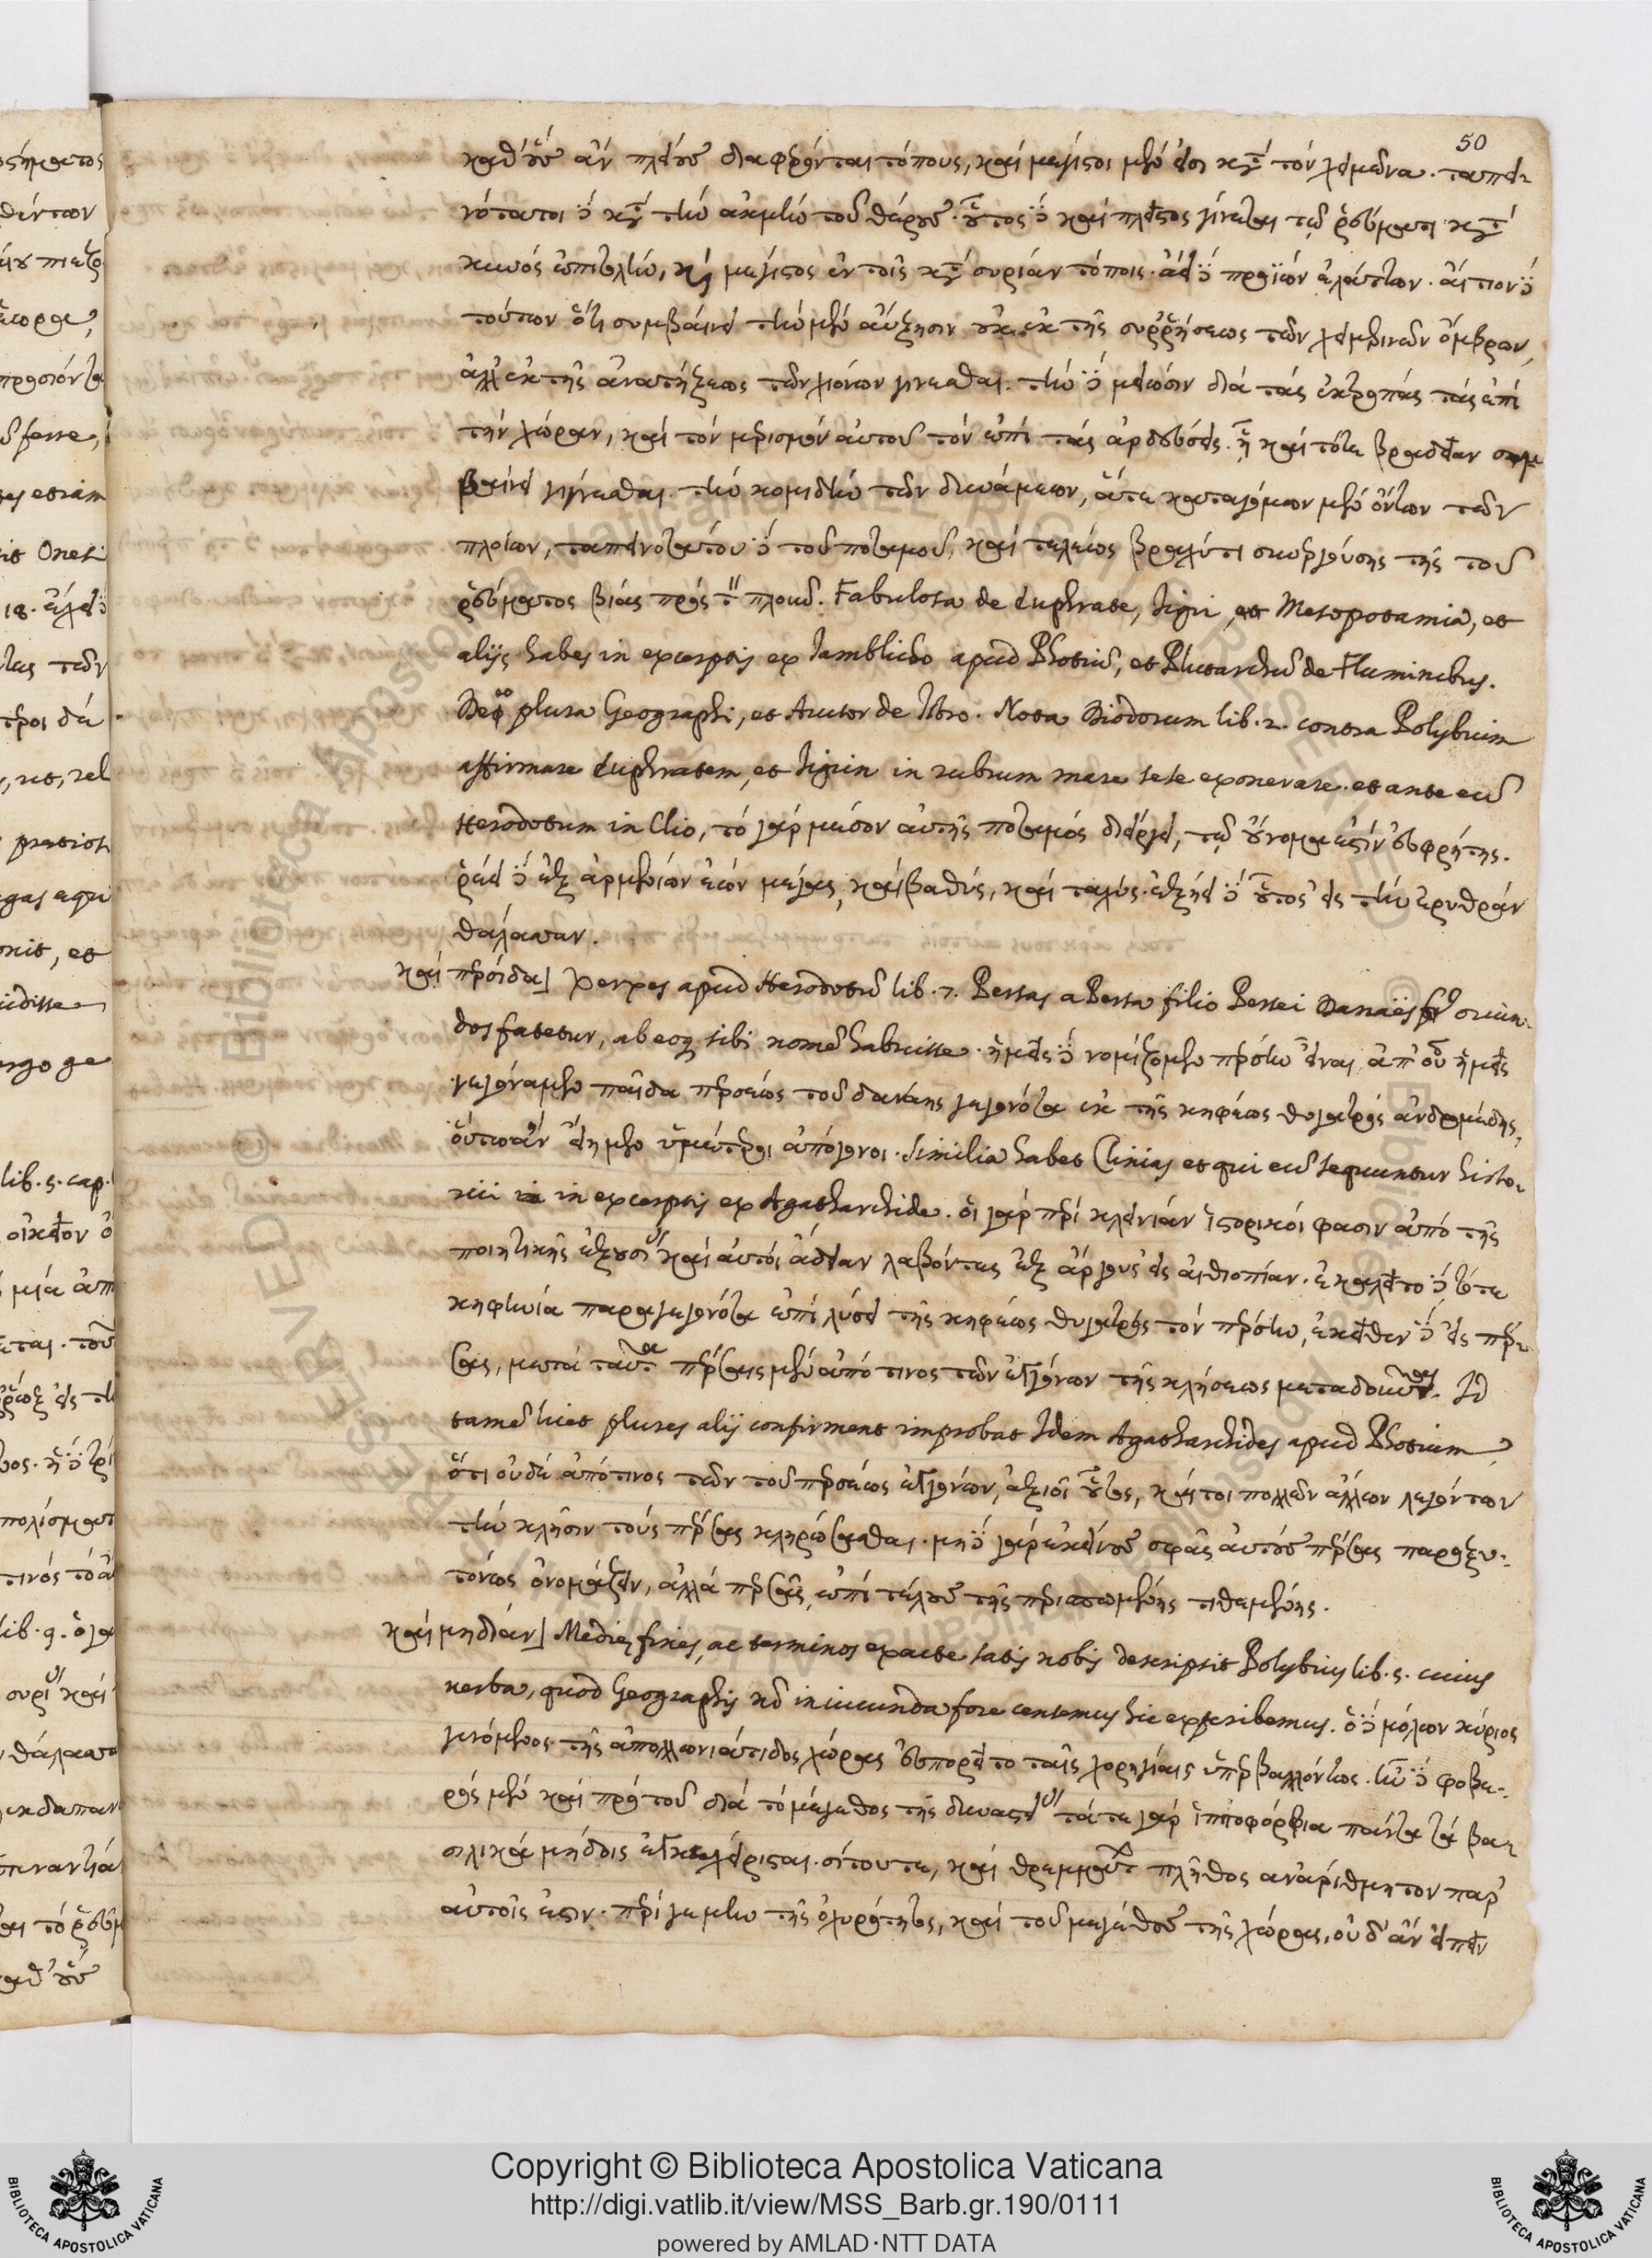 50
καθ' οὓς ἂν πλείους διαφέρωνται τόπους, καὶ μέγιστοι μὲν εἰσι κατὰ τὸν χειμῶνα. ταπει-
νότατοι δὲ κατὰ τὴν ἀκμὴν τοῦ θέρους. οὗτος δὲ καὶ πλεῖστος γίνεται τῷ ῥεύματι κατὰ
κυνὸς ἐπιτολὴν, καὶ μέγιστος ἐν τοῖς κατὰ συρίαν τόποις. ἀεὶ δὲ προϊὼν ἐλάττων. αἴτιον δὲ
τούτων ὅτι συμβαίνει τὴν μὲν αὔξησιν οὐκ ἐκ τῆς συρρήσεως τῶν χειμερινῶν ὄμβρων,
ἀλλ' ἐκ τῆς ἀνατήξεως τῶν χιόνων γίνεσθαι. τὴν δὲ μείωσιν διὰ τὰς ἐκτροπὰς τὰς ἐπὶ
τὴν χώραν, καὶ τὸν μερισμὸν αὐτοῦ τὸν ἐπὶ τὰς ἀρδεύσεις. ᾗ καὶ τότε βραδεῖαν συμ
βαίνει γίγνεσθαι τὴν κομιδὴν τῶν δυνάμεων, ἅτε καταγόμων μὲν ὄντων τῶν
πλοίων, ταπεινοτάτου δὲ τοῦ ποταμοῦ, καὶ τελέως βραχύ τι συνεργούσης τῆς τοῦ
ῥεύματος βίας πρὸς τὸν πλοῦν. Fabulosa de Euphrate, Tigri, et Mesopotamia, et
alijs habes in excerptis ex Iamblicho apud Photiũ, et Plutarchũ de Fluminibus.
plura Geographi, et Auctor de Nota Diodorum lib. 2. contra Polybium
affirmare Euphratem, et Tigrin in rubrum mare sese exonerare. et ante eũ
Herodotum in Clio, τὸ γὰρ μέσον αὐτῆς ποταμὸς διείργει, τῷ οὔνομα ἐστὶν εὐφρήτης.
ῥέει δὲ ἐξ ἀρμενίων ἐὼν μέγας, καὶ βαθὺς, καὶ ταχύς. ἐξίει δὲ οὗτος ἐς τὴν ἐρυθρὰν
θάλασσαν.
καὶ περσίδα] Xerxes apud Herodotũ lib. 7. Persas a Persa filio Persei Danaës oriun-
dos fatetur, ab eoq; sibi nomẽ habuisse. ἡμεῖς δὲ νομίζομεν πέρσην εἶναι ἀπ' οὗ ἡμεῖς
γεγόναμεν παῖδα περσέως τοῦ δανάης γεγονότα ἐκ τῆς κηφέως θυγατρὸς ἀνδρομέδης,
οὕτω ἂν εἴημεν ὑμέτεροι ἀπόγονοι. Similia habet Clinias et qui eũ sequuntur histo-
rici in excerptis ex Agatharchide. οἱ γὰρ περὶ κλεινίαν ἱστορικοί φασιν ἀπὸ τῆς
ποιητικῆς ἐξουσίας καὶ αὐτοὶ ἄδειαν λαβόντες ἐξ ἄργους εἰς αἰθιοπίαν. ἐκαλεῖτο δὲ τότε
κηφηνία παραγεγονότα ἐπὶ λύσει τῆς κηφέως θυγατρὸς τὸν περσέα, ἐκεῖθεν δὲ εἰς πέρ-
σας, μετὰ ταῦτα πέρσαις μὲν ἀπό τινος τῶν ἐκγόνων τῆς κλήσεως μεταδοῦναι. Id
tamẽ licet plures alij confirment improbat Idem Agatharchides apud Photium,
ὅτι οὐδὲ ἀπό τινος τῶν τοῦ περσέως ἐκγόνων, ἀξιοῖ οὗτος, καίτοι πολλῶν ἄλλων λεγόντων
τὴν κλῆσιν τοὺς πέρσας κληρώσασθαι. μηδὲ γὰρ ἐκείνους σφᾶς αὐτοὺς πέρσας παροξυ-
τόνως ὀνομάζειν, ἀλλὰ περσᾶς, ἐπὶ τέλους τῆς περισπωμένης τιθεμένης.
καὶ μηδίαν] Mediæ fines, ac terminos exacte satis nobis descripsit Polybius lib. 5. cuius
verba, quod Geographis nõ iniucunda fore censemus hic exscribemus. ὁ δὲ μόλων κύριος
γενόμενος τῆς ἀπολλωνιάτιδος χώρας εὐπορεῖτο ταῖς χορηγίαις ὑπερβαλλόντως. ἦν δὲ φοβε-
ρὸς μὲν καὶ πρὸ τοῦ διὰ τὸ μέγεθος τῆς δυναστείας τά τε γὰρ ἱπποφόρβια πάντα τὰ βα-
σιλικὰ μήδοις ἐγκεχείρισται. σίτου τε, καὶ θρεμμάτων πλῆθος ἀναρίθμητον παρ'
αὐτοῖς ἐστιν. περί γε μὴν τῆς ὀχυρότητος, καὶ τοῦ μεγέθους τῆς χώρας, οὐδ' ἂν εἰπεῖν
Copyright © Biblioteca Apostolica Vaticana
http://digi.vatlib.it/view/MSS_Barb.gr.190/0111
powered by AMLAD·NTT DATA
BIBLIOTECA APOSTOLICA VATICANA
BIBLIOTECA APOSTOLICA VATICANA